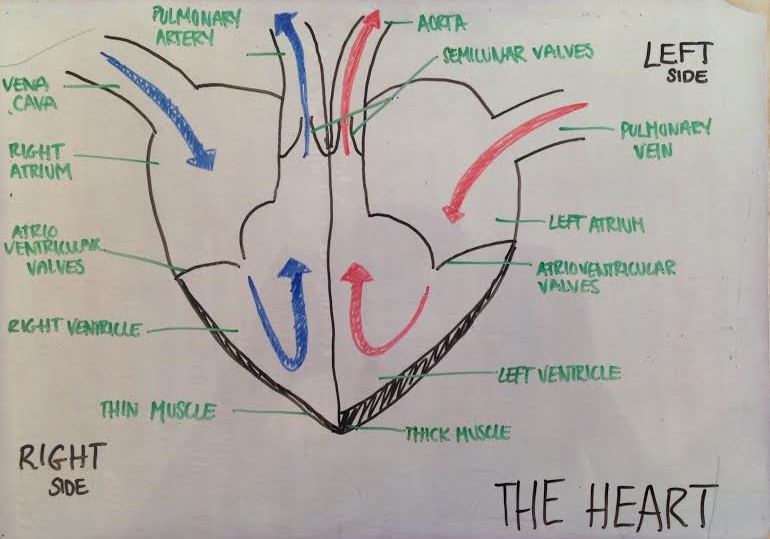 PULMONARY
ARTERY
AORTA
SEMILUNAR VALVES
LEFT
SIDE
VENA
CAVA
PULMONARY
VEIN
RIGHT
ATRIUM
LEFT ATRIUM
ATRIO
VENTRICULAR
VALVES
ATRIOVENTRICULAR
VALVES
RIGHT VENTRICLE
LEFT VENTRICLE
THIN MUSCLE
THICK MUSCLE
RIGHT
SIDE
THE HEART